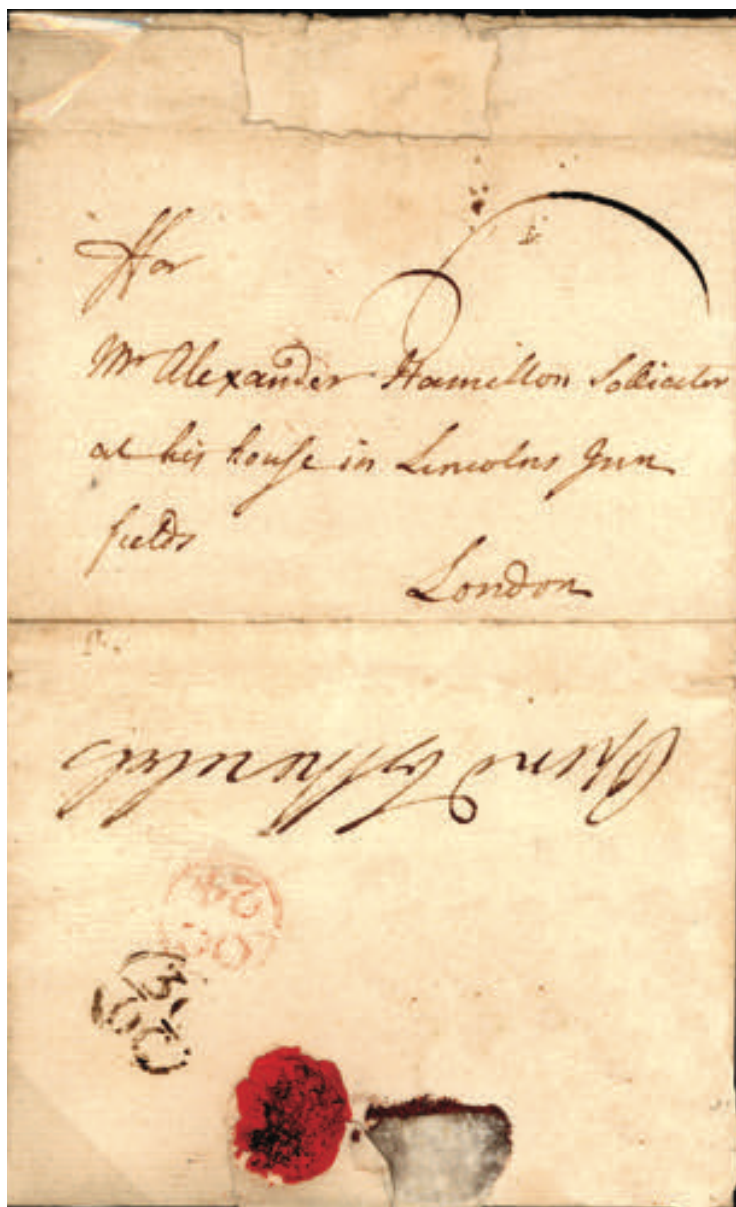 ffor
Mr Alexander Hamilton Solliciter
at his house in Lincolns Inn
fields
London
Opend by
OC